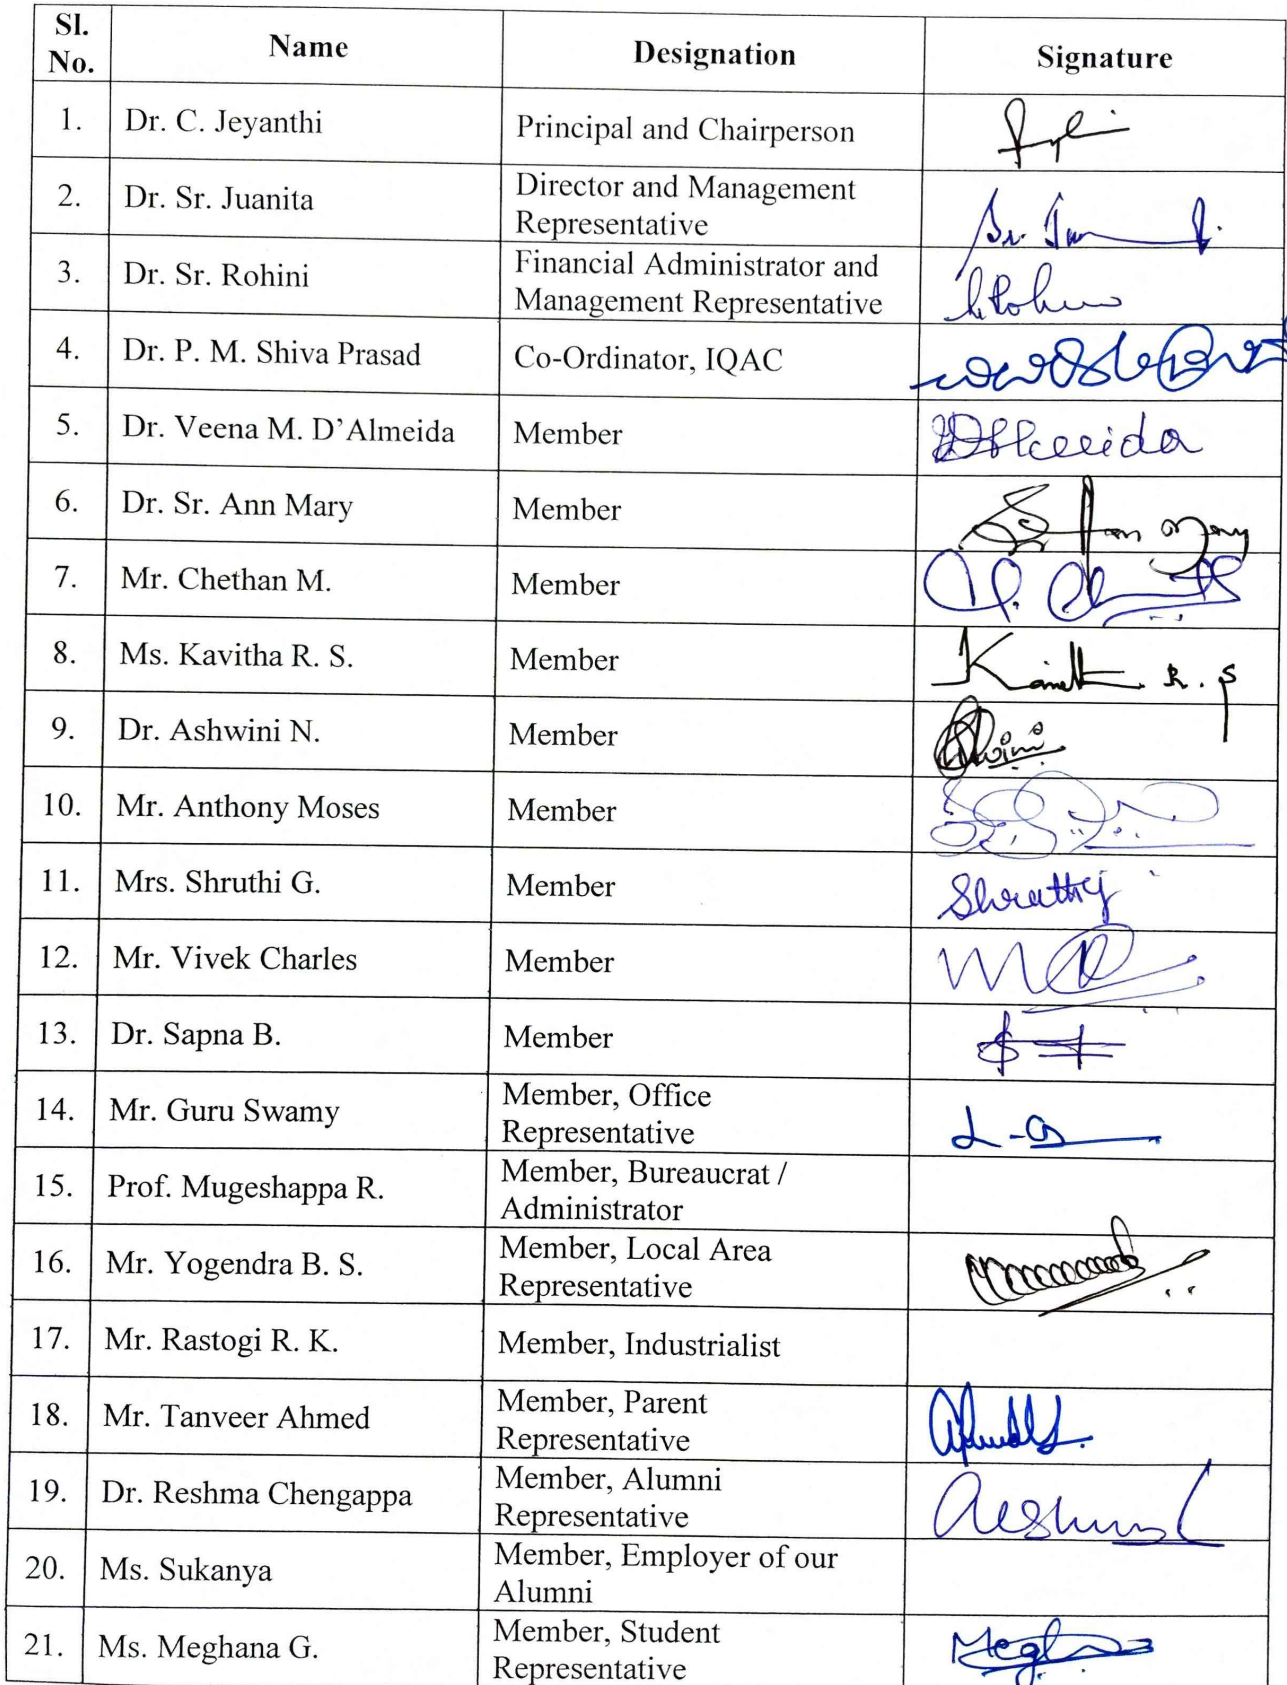 Sl. No. Name Designation Signature
1. Dr. C. Jeyanthi Principal and Chairperson
2. Dr. Sr. Juanita Director and Management Representative
3. Dr. Sr. Rohini Financial Administrator and Management Representative
4. Dr. P. M. Shiva Prasad Co-Ordinator, IQAC
5. Dr. Veena M. D'Almeida Member
6. Dr. Sr. Ann Mary Member
7. Mr. Chethan M. Member
8. Ms. Kavitha R. S. Member
9. Dr. Ashwini N. Member
10. Mr. Anthony Moses Member
11. Mrs. Shruthi G. Member
12. Mr. Vivek Charles Member
13. Dr. Sapna B. Member
14. Mr. Guru Swamy Member, Office Representative
15. Prof. Mugeshappa R. Member, Bureaucrat / Administrator
16. Mr. Yogendra B. S. Member, Local Area Representative
17. Mr. Rastogi R. K. Member, Industrialist
18. Mr. Tanveer Ahmed Member, Parent Representative
19. Dr. Reshma Chengappa Member, Alumni Representative
20. Ms. Sukanya Member, Employer of our Alumni
21. Ms. Meghana G. Member, Student Representative